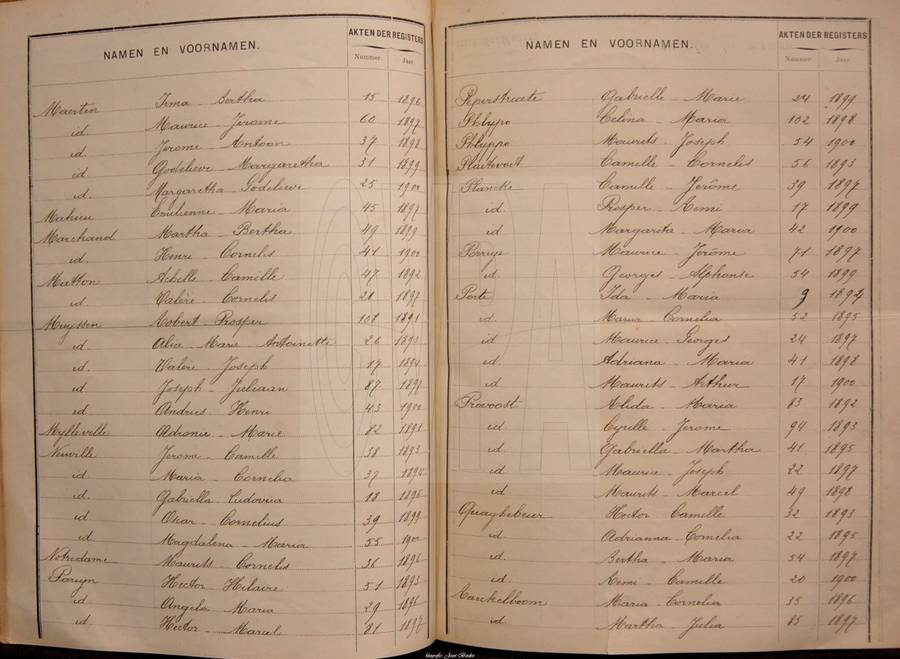 NAMEN EN VOORNAMEN. AKTEN DER REGISTERS
Nummer. Jaar.
Maerten Irma - Bertha 15 1896
id. Maurice - Jerome 60 1897
id. Jerome - Antoon 37 1898
id. Godelieve - Margaretha 31 1899
id. Margaretha - Godelieve 25 1900
Mahieu Emilienne - Maria 45 1897
Marchand Martha - Bertha 49 1899
id. Henri - Cornelis 41 1900
Matton Achille - Camille 47 1892
id. Valère - Cornelis 21 1897
Muyssen Robert - Prosper 101 1891
id. Alix - Marie - Antoinette 26 1893
id. Valère - Joseph 17 1894
id Joseph - Juliaan 87 1897
id Andries Henri 43 1900
Mylleville Adronie - Marie 82 1891
Neuville Jerome - Camille 38 1893
id Maria - Cornelia 37 1894
id. Gabriella Ludovica 18 1896
id. Oskar - Cornelius 39 1899
id Magdalena - Maria 55 1900
Notredame Maurits - Cornelis 36 1896
Paryn Hector - Hilaire 51 1893
id. Angela Maria 29 1896
id. Hector - Marcel 81 1897
NAMEN EN VOORNAMEN. AKTEN DER REGISTERS
Nummer. Jaar.
Peperstraete Gabrielle - Marie 24 1899
Phlypo Celina - Maria 102 1898
Phlyppo Maurits - Joseph 54 1900
Plaetevoet Camille - Cornelis 56 1893
Plancke Camille - Jerôme 39 1897
id. Prosper - Remi 17 1899
id. Margareta - Maria 42 1900
Porrye Maurice - Jerôme 71 1897
id. Georges - Alphonse 54 1899
Porte Ida - Maria 9 1892
id. Maria - Cornelia 52 1895
id. Maurice - Georges 24 1897
id. Adriana - Maria 41 1898
id Maurits - Arthur 17 1900
Provoost Alida - Maria 83 1892
id. Cyrille - Jerome 94 1893
id. Gabriella - Martha 41 1895
id. Maurice - Joseph 22 1897
id. Maurits - Marcel 49 1898
Quaghebeur Hector Camille 32 1893
id. Adrianna - Cornelia 22 1895
id. Bertha - Maria 54 1897
id. Remi - Camille 20 1900
Raeckelboom Maria - Cornelia 35 1896
id. Martha - Julia 85 1897